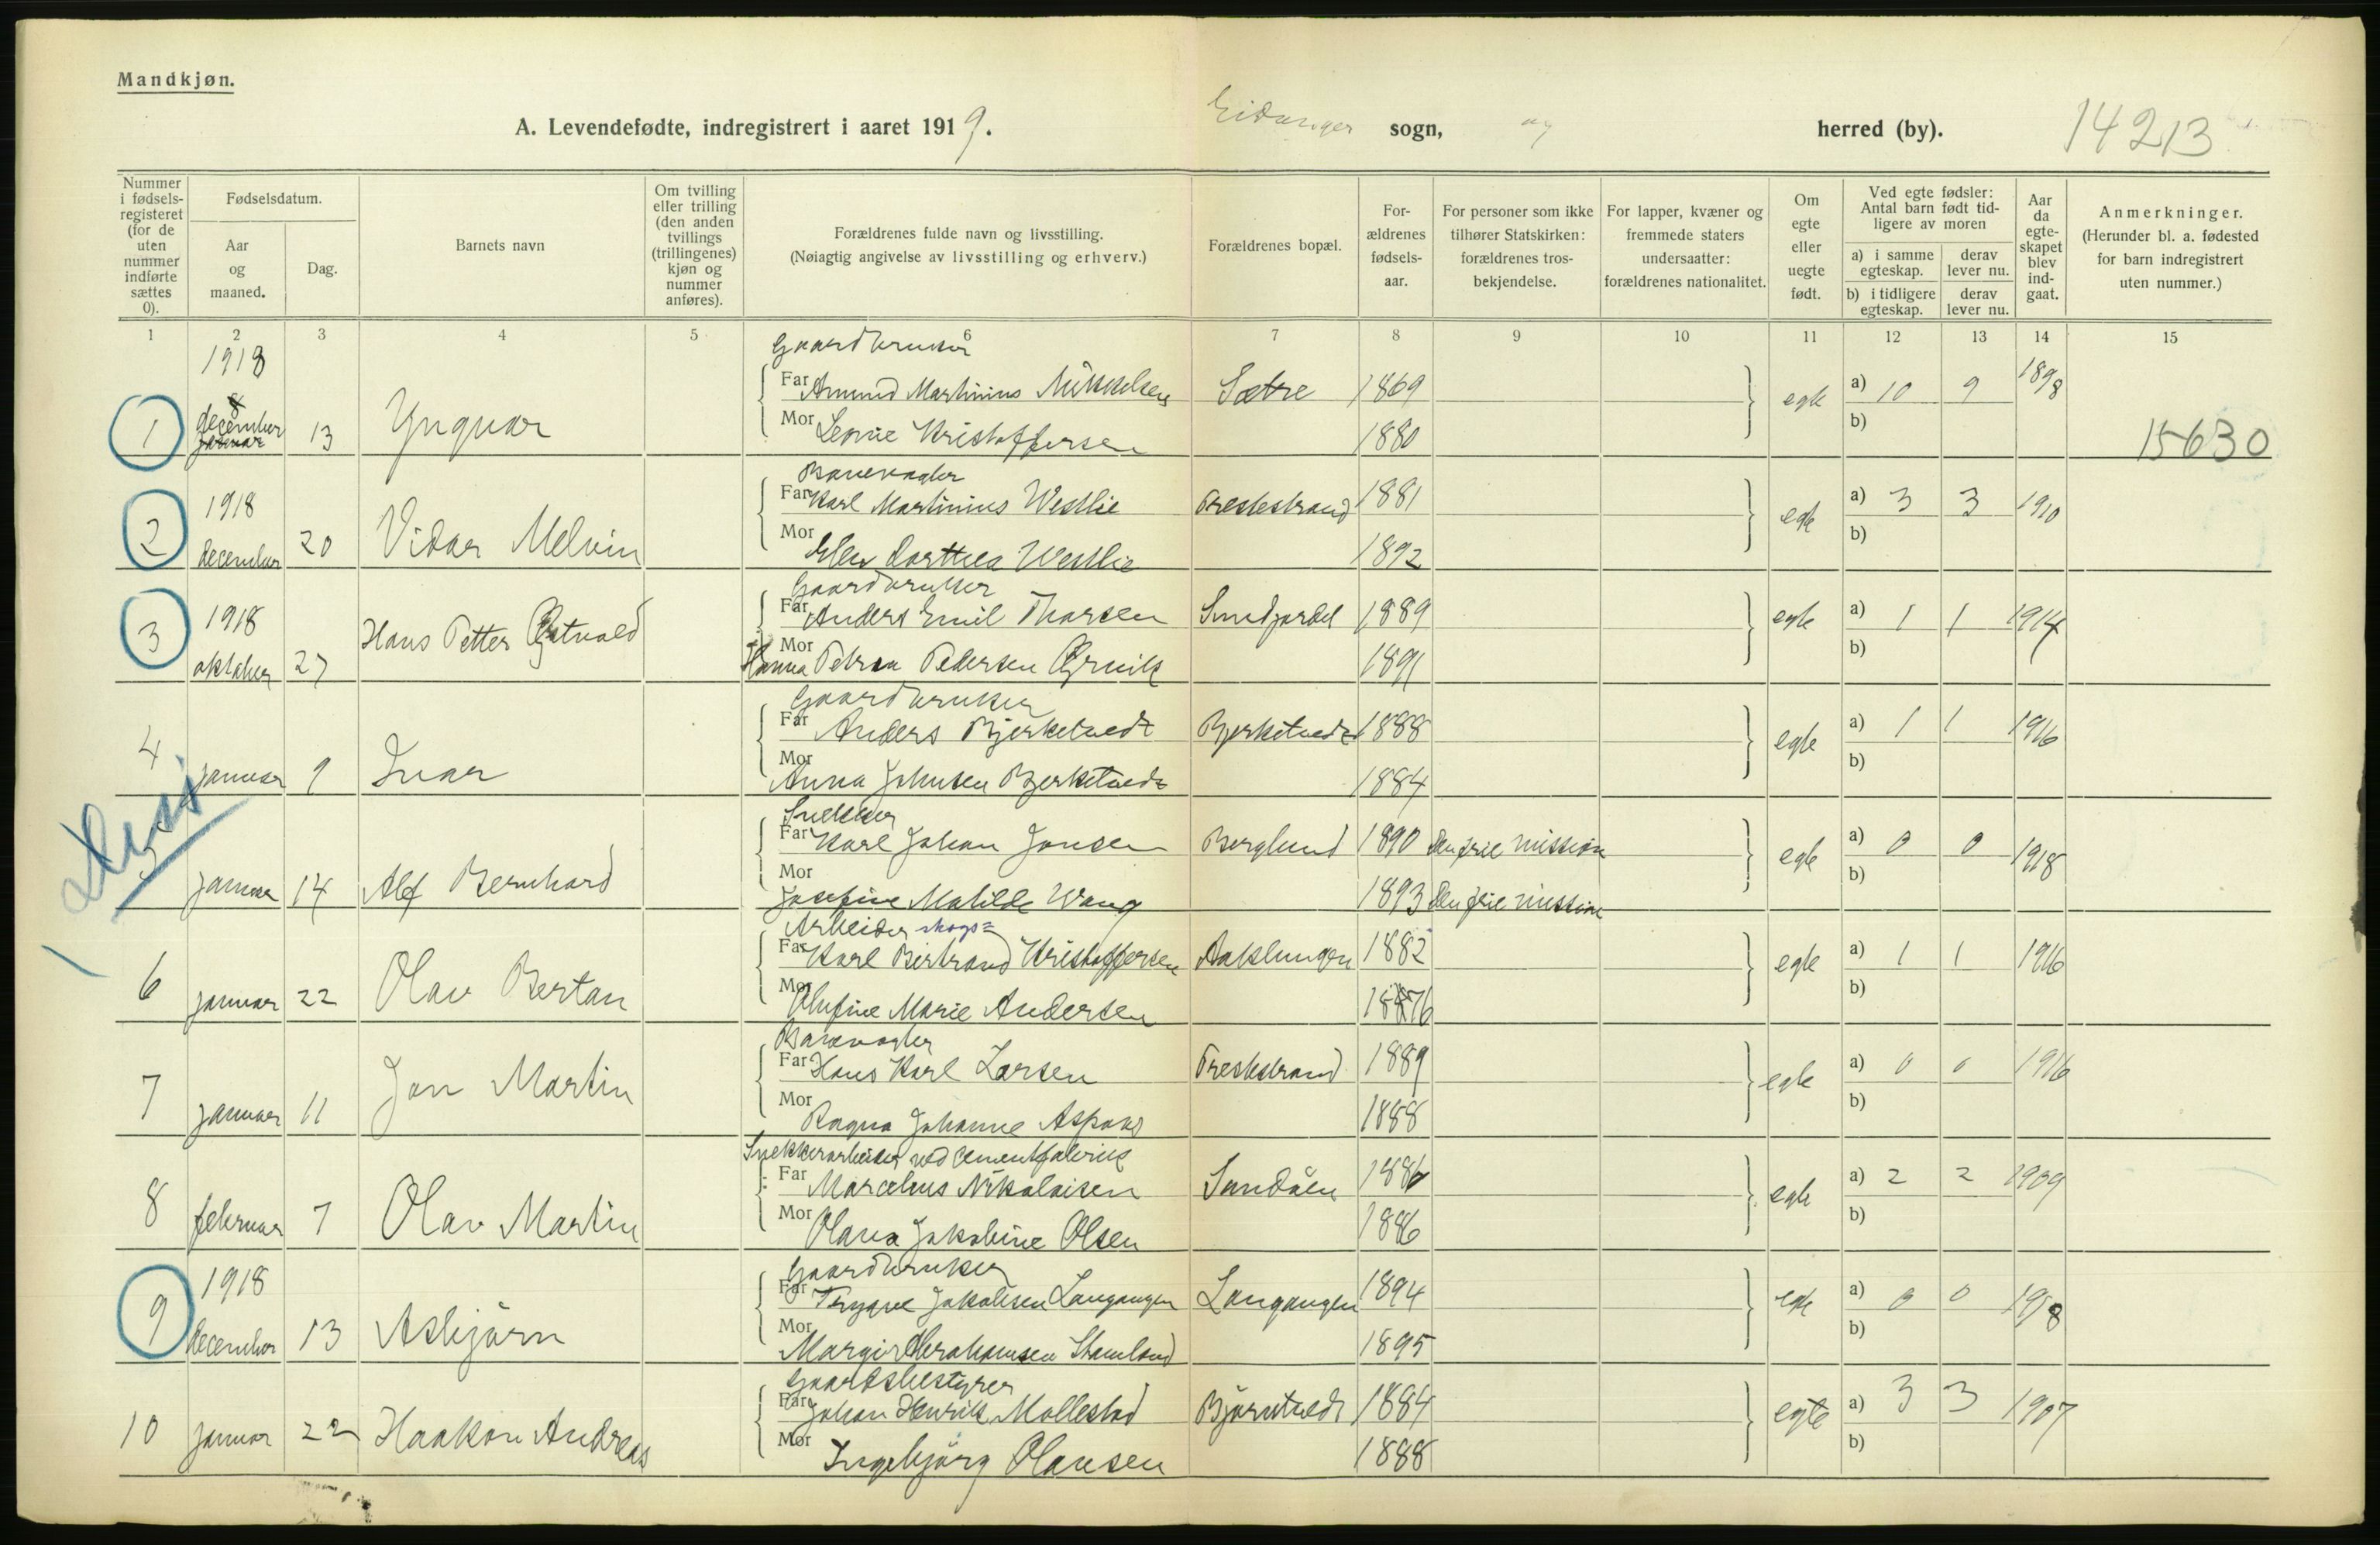 Mandkjøn.
A. Levendefødte, indregistrert i aaret 1919. Eidanger sogn, og herred (by). 14213
Nummer i fødsels-registeret (for de uten nummer indførte sættes 0). Fødselsdatum. Aar og maaned. Dag. Barnets navn Om tvilling eller trilling (den anden tvillings (trillingenes) kjøn og nummer anføres). Forældrenes fulde navn og livsstilling. (Nøiagtig angivelse av livsstilling og erhverv.) Forældrenes bopæl. For-ældrenes fødsels-aar. For personer som ikke tilhører Statskirken: forældrenes tros-bekjendelse. For lapper, kvæner og fremmede staters undersaatter: forældrenes nationalitet. Om egte eller uegte født. Ved egte fødsler: Antal barn født tid-ligere av moren a) i samme egteskap. derav lever nu. b) i tidligere egteskap. derav lever nu. Aar da egte-skapet blev ind-gaat. Anmerkninger. (Herunder bl. a. fødested for barn indregistrert uten nummer.)
1 2 3 4 5 6 7 8 9 10 11 12 13 14 15
1918 Gaardbruker
Far Amund Martinius Mikkelsen Sætre 1869 egte a) 10 9 1898
1 december januar 13 Yngvar Mor Leonie Kristoffersen 1880 b) 15630
Banevagter
1918 Far Karl Martinius Westlie Prestestrand 1881 egte a) 3 3 1910
2 december 20 Vidar Melvin Mor Ellen Dorthea Westlie 1892 b)
Gaardbruker
3 1918 Hans Petter Østvald Far Anders Emil Thorsen 1889 egte a) 1 1 1914
oktober 27 Mor Hanna Petrea Pedersen Ørvik 1891 b)
Gaardbruker
Far Anders Bjerketvedt Bjerketvedt 1888 egte a) 1 1 1916
4 januar 9 Ivar Mor Anna Johnsen Bjerketvedt 1884 b)
Snekker
Far Karl Johan Jonsen Berglund 1890 Den frie mission egte a) 0 0 1918
5 januar 14 Alf Bernhard Mor Josefine Matilde Wang 1893 Den frie mission b)
Arbeider skogs=
Far Karl Bertrand Kristoffersen Aaklungen 1882 egte a) 1 1 1916
6 januar 22 Olav Bertan Mor Olufine Marie Andersen 1876 b)
Banevogter
Far Hans Karl Larsen Prestestrand 1889 egte a) 0 0 1916
7 januar 11 Jon Martin Mor Ragna Johanne Aspaas 1888 b)
Snekkerarbeider ved Cementfabrik
Far Marcelius Nikolaisen Sandåen 1886 egte a) 2 2 1909
8 februar 7 Olav Martin Mor Olava Jakobine Olsen 1886 b)
Gaardbruker
1918 Far Trygve Jakobsen Langangen Langangen 1894 egte a) 0 0 1918
9 december 13 Asbjørn Mor Margit Abrahamsen 1895 b)
Gaardsbestyrer
Far Johan Henrik Mollestad Bjørntvedt 1884 egte a) 3 3 1907
10 januar 22 Haakon Andreas Mor Ingebjørg Olausen 1888 b)